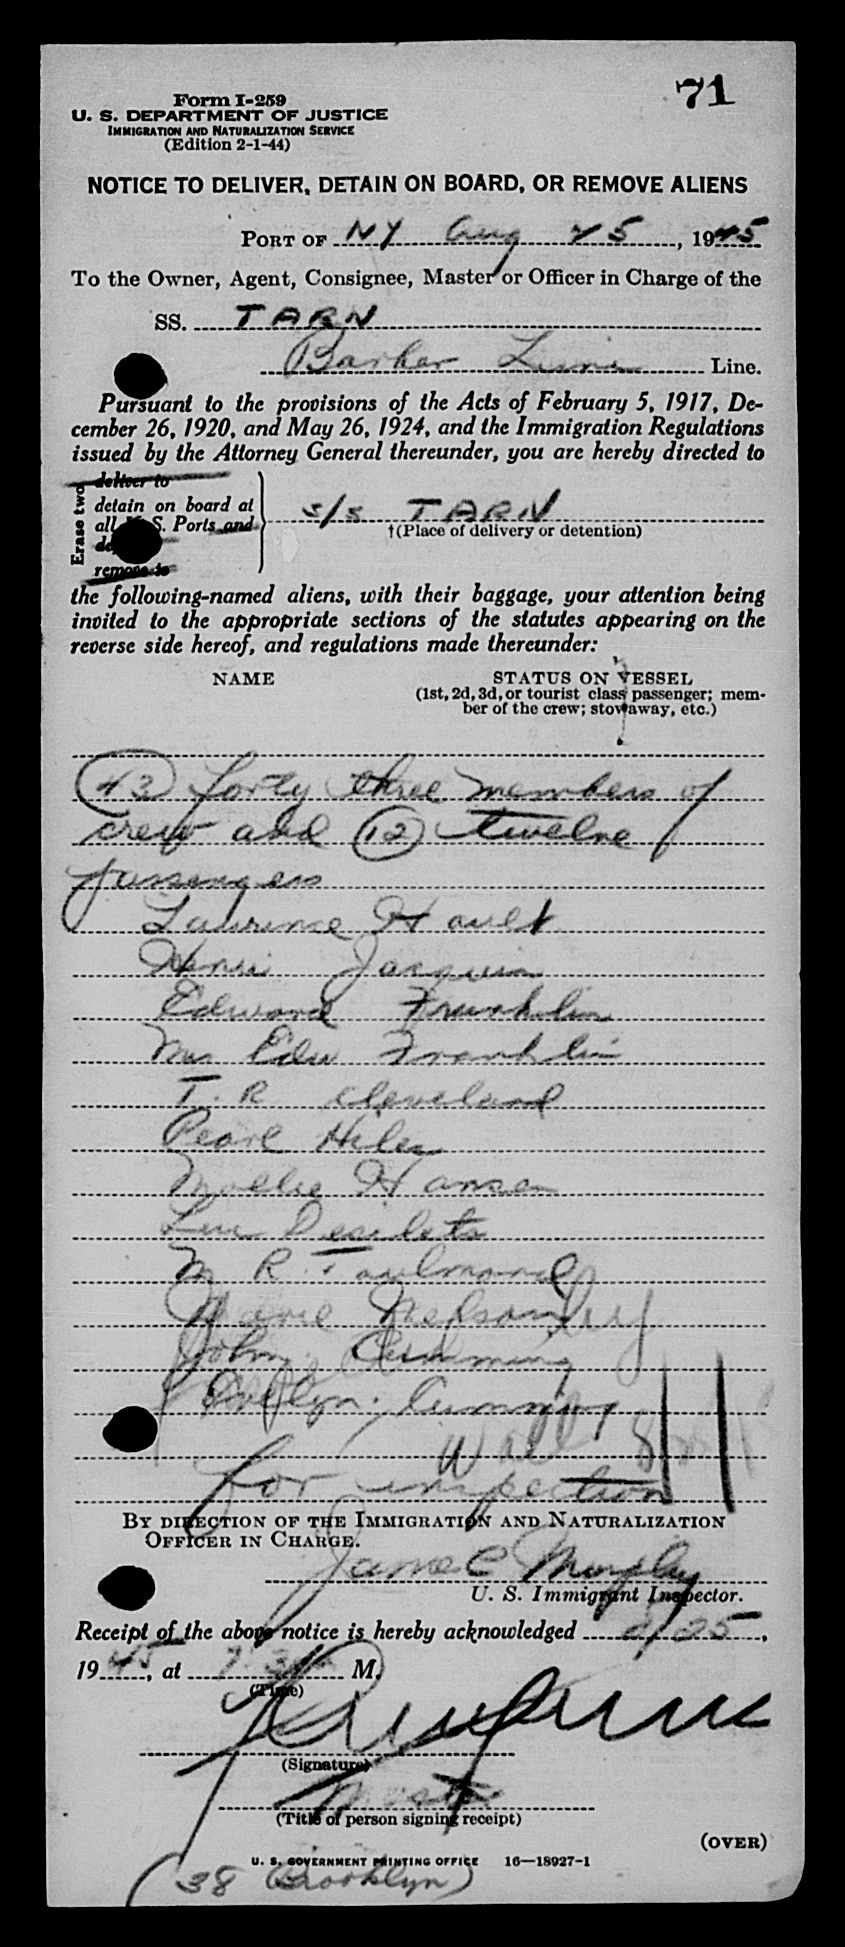 71
Form I-259
U. S. DEPARTMENT OF JUSTICE
IMMIGRATION AND NATURALIZATION SERVICE
(Edition 2-1-44)
NOTICE TO DELIVER, DETAIN ON BOARD, OR REMOVE ALIENS
PORT OF NY Aug 25, 1945
To the Owner, Agent, Consignee, Master or Officer in Charge of the
SS. TARN
Barber Line Line.
Pursuant to the provisions of the Acts of February 5, 1917, De-
cember 26, 1920, and May 26, 1924, and the Immigration Regulations
issued by the Attorney General thereunder, you are hereby directed to
Erase two
deliver to
detain on board at
all U. S. Ports and
remove to
s/s TARN
†(Place of delivery or detention)
the following-named aliens, with their baggage, your attention being
invited to the appropriate sections of the statutes appearing on the
reverse side hereof, and regulations made thereunder:
NAME STATUS ON VESSEL
(1st, 2d, 3d, or tourist class passenger; mem-
ber of the crew; stowaway, etc.)
(43) forty three members of
crew and (12) twelve
passengers
Laurence Hault
Henri Jacquin
Edward Franklin
Mrs Edw Franklin
T. R Cleveland
Pearl Hiles
Mollie Hansen
Desilets
M R
Marie Nelson
John Cumming
Evelyn Cumming
for inspection
BY DIRECTION OF THE IMMIGRATION AND NATURALIZATION
OFFICER IN CHARGE.
James C Murphy
U. S. Immigrant Inspector.
Receipt of the above notice is hereby acknowledged 8/25,
1945, at M.
(Time)
(Signature)
Master
(Title of person signing receipt)
(OVER)
U. S. GOVERNMENT PRINTING OFFICE 16—18927-1
(38 Brooklyn)